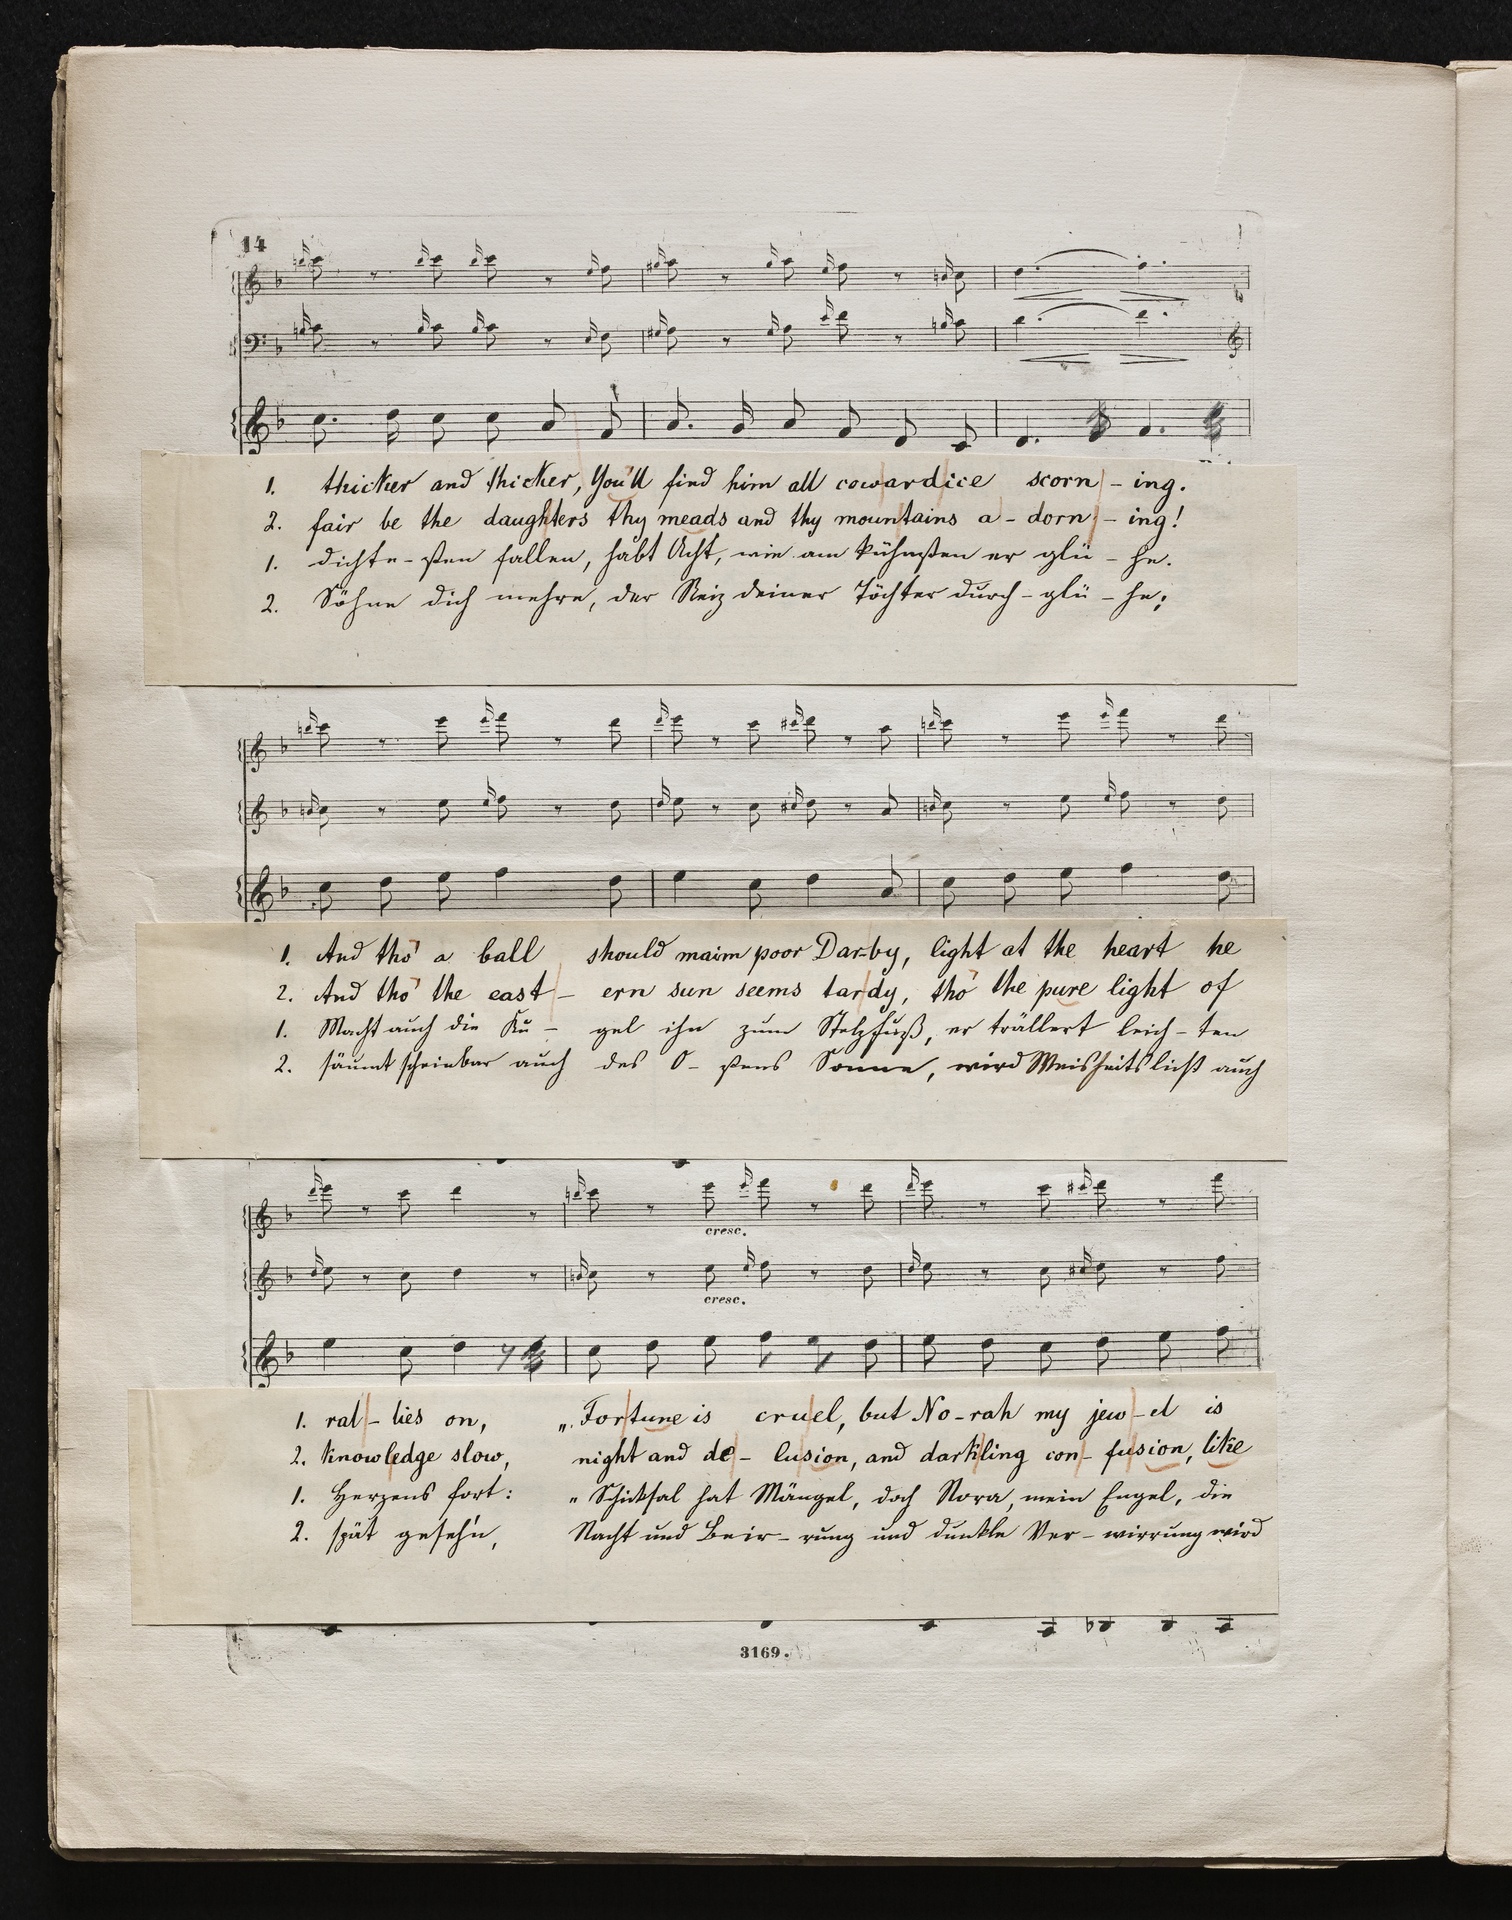 14
1. thicker and thicker, You'll find him all cowardice scorn - ing.
2. fair be the daughters thy meads and thy mountains a - dorn - ing!
1. dichte - sten fallen, habt Acht, wie am kühnsten er glü - he.
2. Söhne dich mehre, der Reiz deiner Töchter durch - glü - he;
1. And tho' a ball should maim poor Dar-by, light at the heart he
2. And tho' the east - ern sun seems tardy, tho' the pure light of
1. Macht auch die Ku - gel ihn zum Stelzfuß, er trällert leich - ten
2. säumt scheinbar auch des O - stens Sonne, wird Weisheitslicht auch
cresc.
cresc.
1. ral - lies on, „Fortune is cruel, but No - rah my jew - el is
2. knowledge slow, night and de - lusion, and darkling con - fusion, like
1. Herzens fort: „Schicksal hat Mängel, doch Nora, mein Engel, die
2. spät geseh'n, Nacht und Beir - rung und dunkle Ver - wirrung wird
3169.